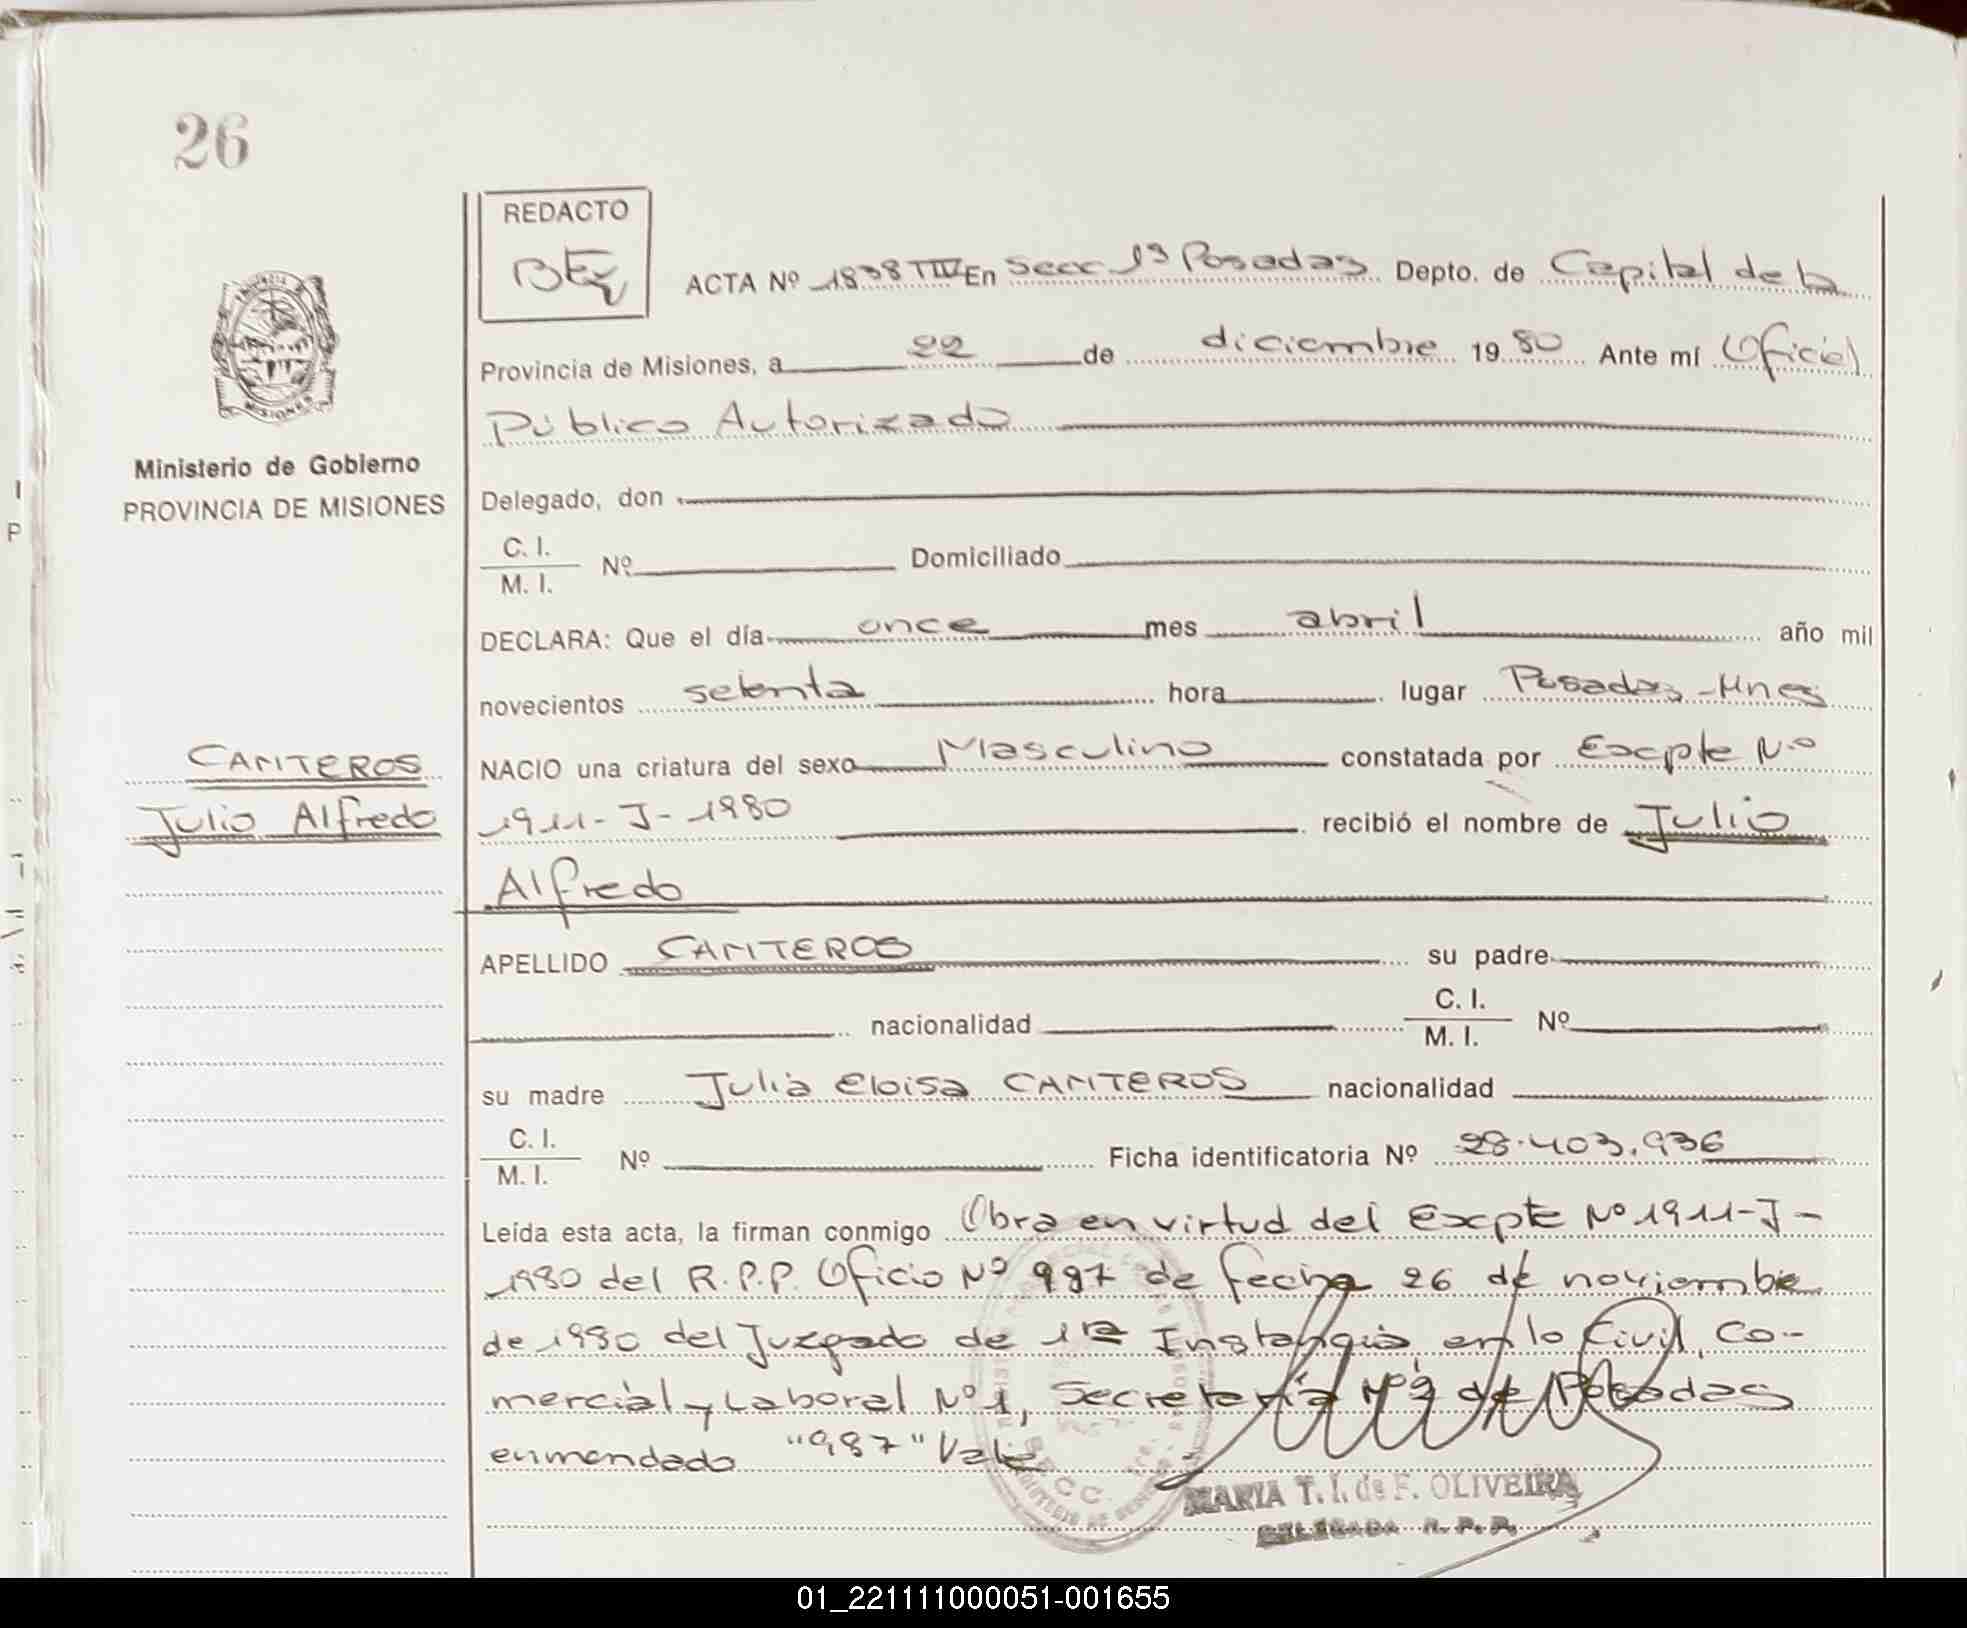 26
REDACTO
ACTA Nº 1838 TIV En Secc 1ª Posadas Depto. de Capital de la
Provincia de Misiones, a 22 de diciembre 19 80 Ante mí Oficial
Público Autorizado
Ministerio de Gobierno
PROVINCIA DE MISIONES
Delegado, don
C. I.
M. I. Nº Domiciliado
DECLARA: Que el día once mes abril año mil
novecientos setenta hora lugar Posadas - Mnes
CANTEROS
Julio Alfredo
NACIO una criatura del sexo Masculino constatada por Excpte Nº
1911-J-1980 recibió el nombre de Julio
Alfredo
APELLIDO CANTEROS su padre
nacionalidad C. I.
M. I. Nº
su madre Julia Eloisa CANTEROS nacionalidad
C. I.
M. I. Nº Ficha identificatoria Nº 28.403.936
Leída esta acta, la firman conmigo Obra en virtud del Excpte Nº 1911-J-
1980 del R.P.P. Oficio Nº 987 de fecha 26 de noviembre
de 1980 del Juzgado de 1ra Instancia en lo Civil, Co-
mercial y Laboral Nº 1, Secretaría Nº 2 de Posadas
enmendado "987" Vale
MARIA T. I. de F. OLIVEIRA
DELEGADA R. P. P.
01_221111000051-001655